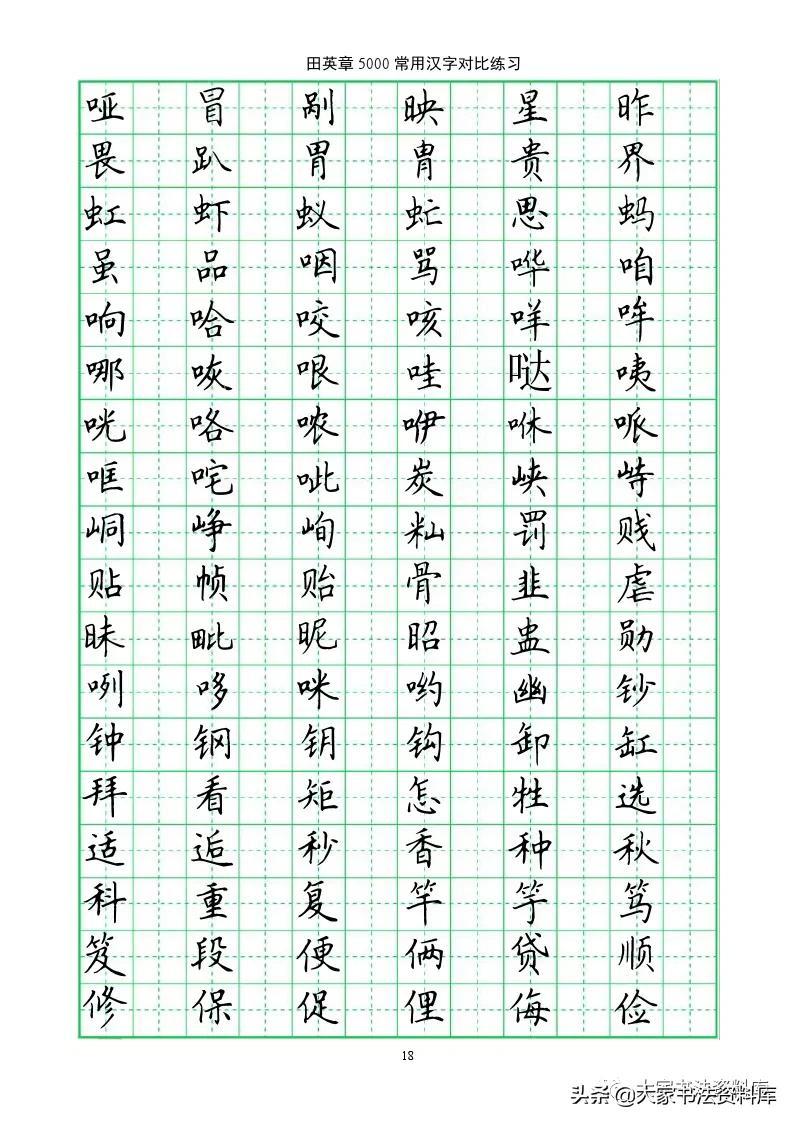 田英章5000常用汉字对比练习
哑冒剐映星昨
畏趴胃胄贵界
虹虾蚁虻思蚂
虽品咽骂哗咱
响哈咬咳咩哞
哪咴哏哇哒咦
咣咯哝咿咻哌
哐咤呲炭峡峙
峒峥峋籼罚贱
贴帧贻骨韭虐
昧毗昵昭盅勋
咧哆咪哟幽钞
钟钢钥钩卸缸
拜看矩怎牲选
适逅秒香种秋
科重复竿竽笃
笈段便俩贷顺
修保促俚侮俭
18
头条@大家书法资料库